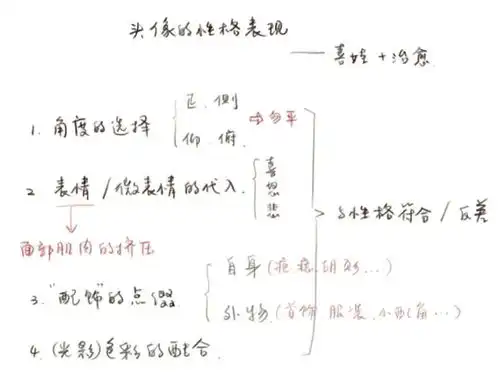 头像的性格表现
——喜娃+治愈
1. 角度的选择
正、侧
仰、俯
⇒ 勿平
2 表情/微表情的代入
喜
想
悲
与性格符合/反差
面部肌肉的挤压
3. "配饰"的点缀
自身(疤痣胡须...)
外物(首饰 服装、小配角...)
4. (光影)色彩的配合